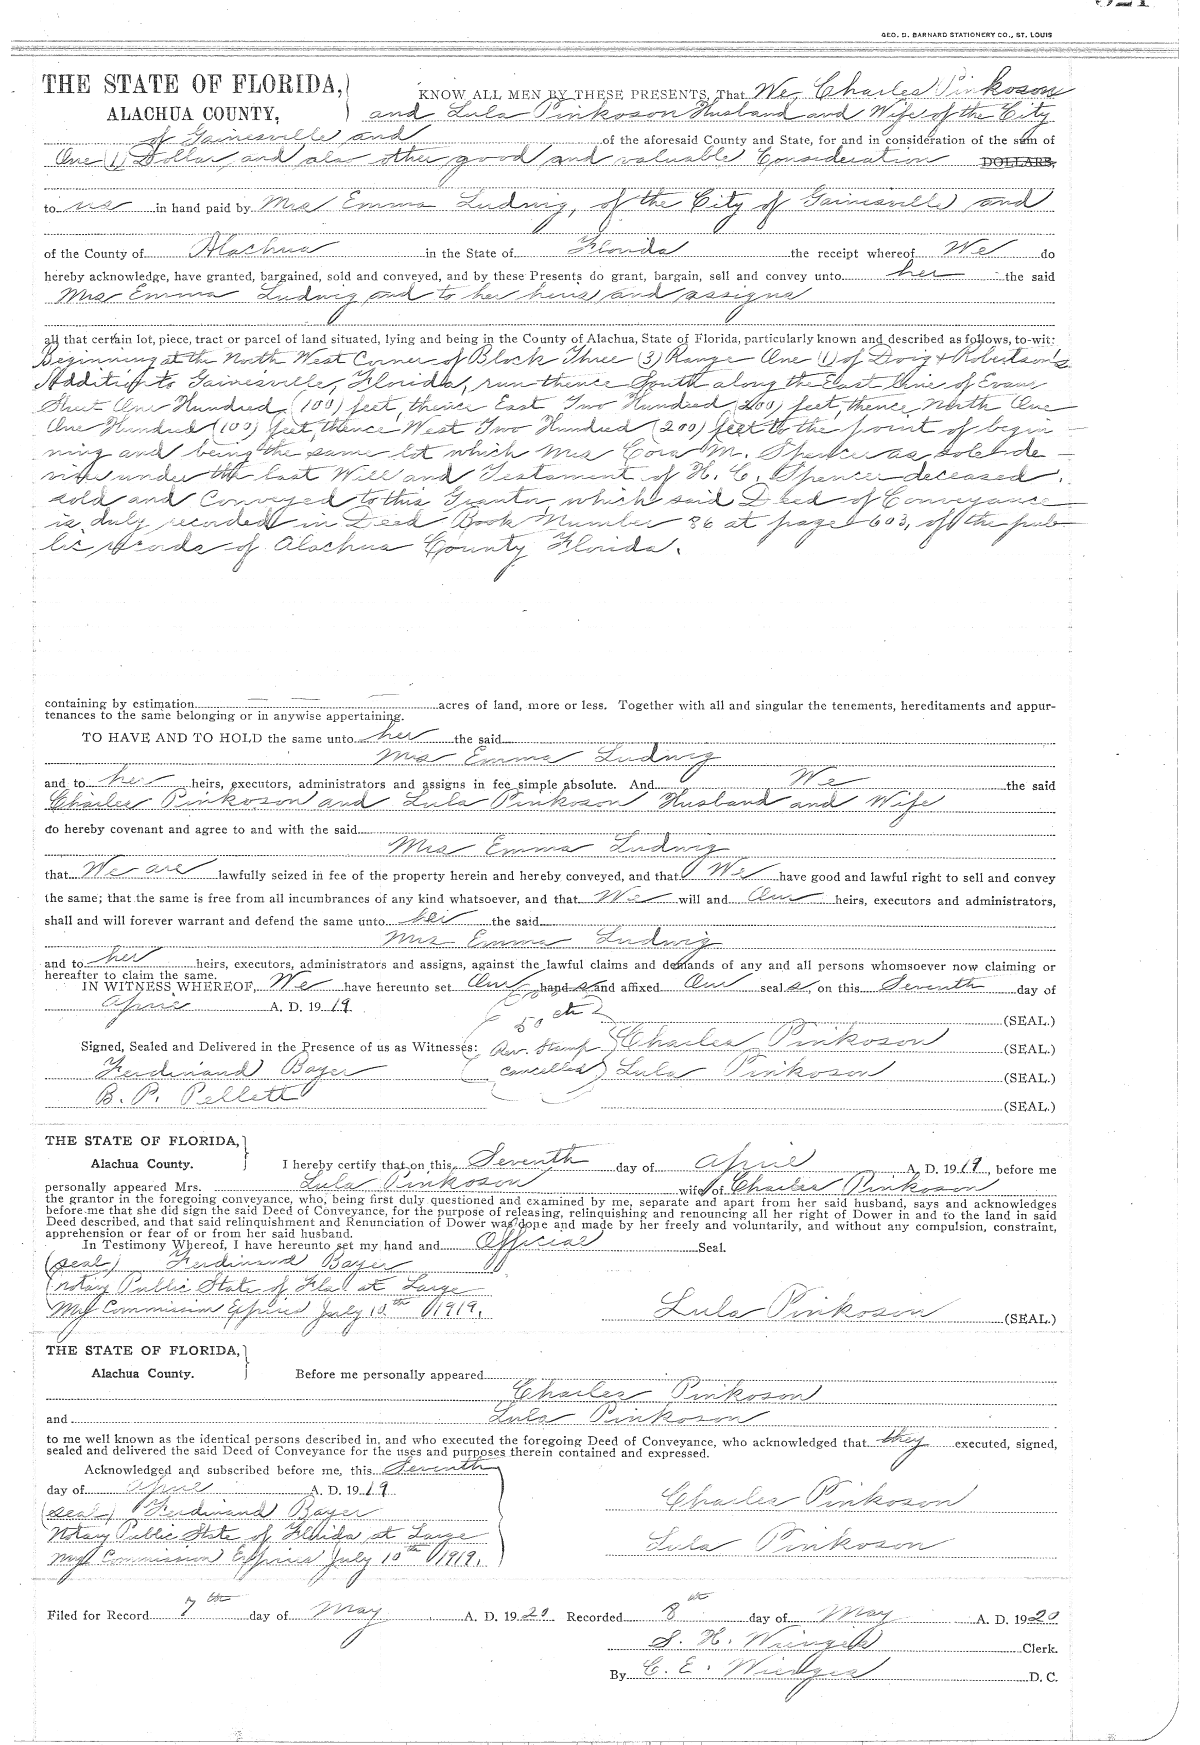 GEO. D. BARNARD STATIONERY CO., ST. LOUIS
THE STATE OF FLORIDA,
ALACHUA COUNTY,
KNOW ALL MEN BY THESE PRESENTS, That We, Charles Pinkoson
and Lula Pinkoson Husband and Wife of the City
of Gainesville and of the aforesaid County and State, for and in consideration of the sum of
One (1) Dollar and also other good and valuable Consideration DOLLARS,
to us in hand paid by Mrs Emma Ludwig, of the City of Gainesville and
of the County of Alachua in the State of Florida the receipt whereof We do
hereby acknowledge, have granted, bargained, sold and conveyed, and by these Presents do grant, bargain, sell and convey unto her the said
Mrs Emma Ludwig and to her heirs and assigns
all that certain lot, piece, tract or parcel of land situated, lying and being in the County of Alachua, State of Florida, particularly known and described as follows, to-wit:
Beginning at the North West Corner of Block Three (3) Range One (1) of Doig & Robertson's
Addition to Gainesville, Florida, run thence South along the East line of Evans
Street One Hundred (100) feet, thence East Two Hundred (200) feet, thence North One
One Hundred (100) feet, thence West Two Hundred (200) feet to the point of begin
ning and being the same lot which Mrs Cora M. Spencer as sole de-
visee under the last Will and Testament of H. C. Spencer deceased.
sold and Conveyed to this Grantor, which said Deed of Conveyance
is duly recorded in Deed Book Number 86 at page 603, of the pub-
lic records of Alachua County Florida.
containing by estimation acres of land, more or less. Together with all and singular the tenements, hereditaments and appur-
tenances to the same belonging or in anywise appertaining.
TO HAVE AND TO HOLD the same unto her the said
Mrs Emma Ludwig
and to her heirs, executors, administrators and assigns in fee simple absolute. And We the said
Charles Pinkoson and Lula Pinkoson Husband and Wife
do hereby covenant and agree to and with the said
Mrs Emma Ludwig
that We are lawfully seized in fee of the property herein and hereby conveyed, and that We have good and lawful right to sell and convey
the same; that the same is free from all incumbrances of any kind whatsoever, and that We will and Our heirs, executors and administrators,
shall and will forever warrant and defend the same unto her the said
Mrs Emma Ludwig
and to her heirs, executors, administrators and assigns, against the lawful claims and demands of any and all persons whomsoever now claiming or
hereafter to claim the same.
IN WITNESS WHEREOF, We have hereunto set Our hands and affixed Our seals, on this Seventh day of
April A. D. 1919
(SEAL.)
50 cts
Signed, Sealed and Delivered in the Presence of us as Witnesses: Rev. Stamp Charles Pinkoson (SEAL.)
Ferdinand Bayer cancelled Lula Pinkoson (SEAL.)
B. P. Pellett (SEAL.)
THE STATE OF FLORIDA,
Alachua County. I hereby certify that on this Seventh day of April A. D. 1919, before me
personally appeared Mrs. Lula Pinkoson wife of Charles Pinkoson
the grantor in the foregoing conveyance, who, being first duly questioned and examined by me, separate and apart from her said husband, says and acknowledges
before me that she did sign the said Deed of Conveyance, for the purpose of releasing, relinquishing and renouncing all her right of Dower in and to the land in said
Deed described, and that said relinquishment and Renunciation of Dower was done and made by her freely and voluntarily, and without any compulsion, constraint,
apprehension or fear of or from her said husband.
In Testimony Whereof, I have hereunto set my hand and Official Seal.
(seal) Ferdinand Bayer
Notary Public State of Fla at Large
My Commission Expires July 10th 1919. Lula Pinkoson (SEAL.)
THE STATE OF FLORIDA,
Alachua County. Before me personally appeared
Charles Pinkoson
and Lula Pinkoson
to me well known as the identical persons described in, and who executed the foregoing Deed of Conveyance, who acknowledged that they executed, signed,
sealed and delivered the said Deed of Conveyance for the uses and purposes therein contained and expressed.
Acknowledged and subscribed before me, this Seventh
day of April A. D. 1919 Charles Pinkoson
(seal) Ferdinand Bayer
Notary Public State of Florida at Large Lula Pinkoson
My Commission Expires July 10th 1919.
Filed for Record 7th day of May A. D. 1920 Recorded 8th day of May A. D. 1920
S. H. Wienges Clerk.
By C. E. Wienges D. C.